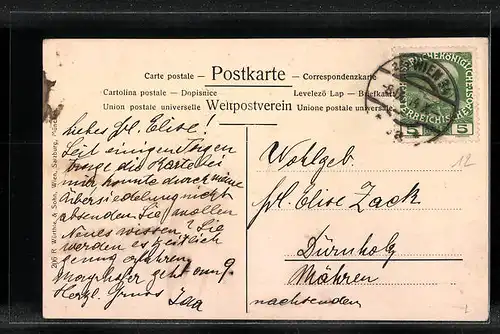 Carte postale — Postkarte — Correspondenzkarte
Cartolina postale — Dopisnice Levelező Lap — Briefkarte
Union postale universelle Weltpostverein Unione postale universale
liebes frl. Elise!
Seit einigen Tagen
trage die Karte bei
mir, konnte durch meine
Übersiedelung nicht
absenden. Sie wollen
Neues wissen? Sie
werden es zeitlich
genug erfahren.
geht am 9.
Herzl. Gruss
Wohlgeb.
frl. Elise Zack
Dürnholz
Mähren
nachsenden
WIEN
5 5
12
206 R. Würthle & Sohn, Wien, Salzburg,